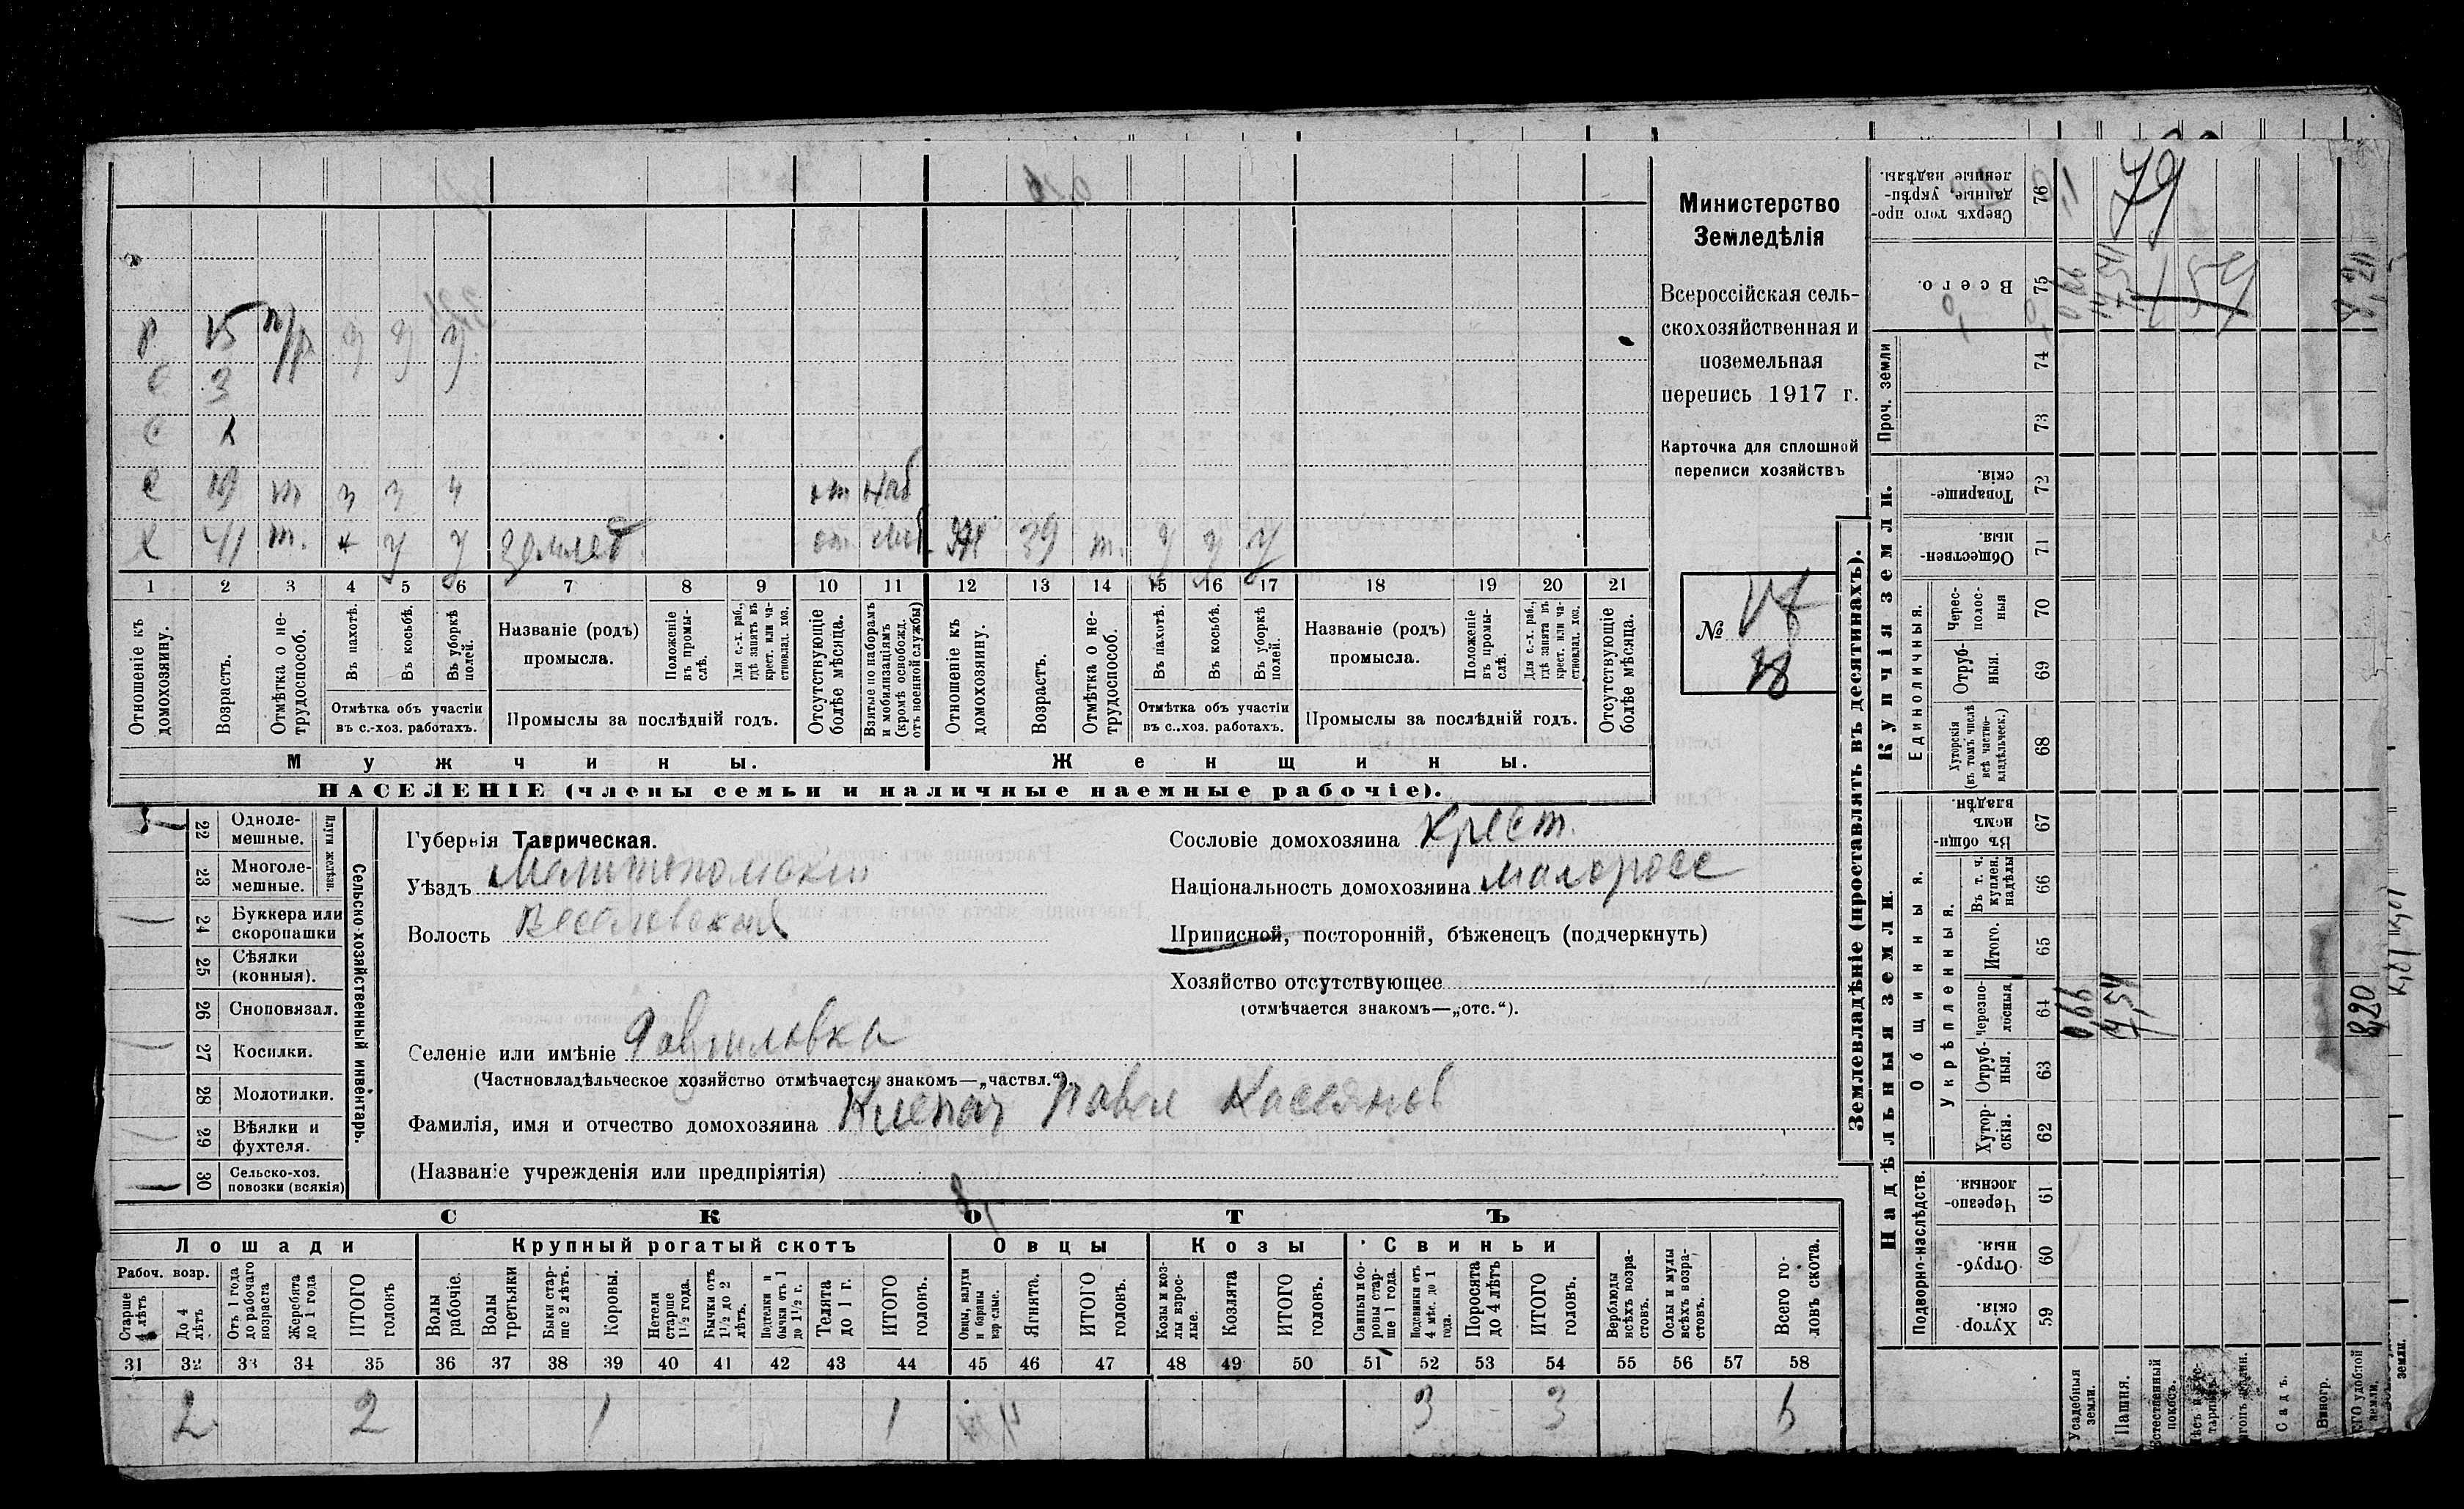 р 15 н/р у у у
с 3
с
с 19 т от наб
х 41 т. у у землед. от моб. 39 т. у у у
1 2 3 4 5 6 7 8 9 10 11 12 13 14 15 16 17 18 19 20 21
Отношеніе къ домохозяину.
Возрастъ.
Отмѣтка о не-
трудоспособ.
Въ пахотѣ.
Въ косьбѣ.
Въ уборкѣ
полей.
Отмѣтка объ участіи
въ с.-хоз. работахъ.
Названіе (родъ)
промысла.
Положеніе
въ промы-
слѣ.
Для с.-х. раб.,
гдѣ занятъ въ
крест. или ча-
стновлад. хоз.
Промыслы за послѣдній годъ.
Отсутствующіе
болѣе мѣсяца.
Взятые по наборамъ
и мобилизаціямъ
(кромѣ освобожд.
отъ военной службы)
Отношеніе къ
домохозяину.
Возрастъ.
Отмѣтка о не-
трудоспособ.
Въ пахотѣ.
Въ косьбѣ.
Въ уборкѣ
полей.
Отмѣтка объ участіи
въ с..хоз. работахъ.
Названіе (родъ)
промысла.
Положеніе
въ промы-
слѣ.
Для с.-х. раб.,
гдѣ занята въ
крест. или ча-
стновлад. хоз.
Промыслы за послѣдній годъ.
Отсутствующіе
болѣе мѣсяца.
Мужчины.
Женщины.
НАСЕЛЕНІЕ (члены семьи и наличные наемные рабочіе).
Министерство
Земледѣлія
Всероссійская сель-
скохозяйственная и
поземельная
перепись 1917 г.
Карточка для сплошной
переписи хозяйствъ
№
22 Одноле-
мешные.
23 Многоле-
мешные.
Плуги желѣзн.
24 Буккера или
скоропашки
25 Сѣялки
(конныя).
26 Сноповязал.
27 Косилки.
28 Молотилки.
29 Вѣялки и
фухтеля.
30 Сельско-хоз.
повозки (всякія)
Сельско-хозяйственный инвентарь.
Губернія Таврическая.
Уѣздъ Мелитопольскій
Волость Веселовская
Селеніе или имѣніе Гавриловка
(Частновладѣльческое хозяйство отмѣчается знакомъ—„частвл.“).
Фамилія, имя и отчество домохозяина Клепач Павел Кассянов
(Названіе учрежденія или предпріятія)
Сословіе домохозяина Крест.
Національность домохозяина малоросс
Приписной, посторонній, бѣженецъ (подчеркнуть)
Хозяйство отсутствующее
(отмѣчается знакомъ—„отс.“).
СКОТЪ
Лошади Крупный рогатый скотъ Овцы Козы Свиньи
Рабоч. возр.
Старше
4 лѣтъ
До 4
лѣтъ
Отъ 1 года
до рабочаго
возраста
Жеребята
до 1 года
ИТОГО
головъ
Волы
рабочіе.
Волы
третьяки
Быки стар-
ше 2 лѣтъ.
Коровы.
Нетели
старше
1½ года.
Бычки отъ
1½ до 2
лѣтъ.
Подтелки и
бычки отъ 1
до 1½ г.
Телята
до 1 г.
ИТОГО
головъ.
Овцы, валухи
и бараны
взрослые.
Ягнята.
ИТОГО
головъ.
Козы и коз-
лы взрос-
лые.
Козлята
ИТОГО
головъ.
Свиньи и бо-
ровы стар-
ше 1 года.
Подсвинки отъ
4 мѣс. до 1
года.
Поросята
до 4 лѣтъ
ИТОГО
головъ.
Верблюды
всѣхъ возра-
стовъ.
Ослы и мулы
всѣхъ возра-
стовъ.
Всего го-
ловъ скота.
31 32 33 34 35 36 37 38 39 40 41 42 43 44 45 46 47 48 49 50 51 52 53 54 55 56 57 58
2 2 1 1 3 3 6
Землевладѣніе (проставлять въ десятинахъ).
Надѣльныя земли.
Купчія земли.
Проч. земли
Подворно-наслѣдств.
Общинныя.
Укрѣпленныя.
Единоличныя.
Сверхъ того про-
данные укрѣп-
ленные надѣлы.
76
79
Всего.
75
0,66
14,54
74
73
Товарище-
скія.
72
Обществен-
ныя.
71
Черес-
полос-
ныя
70
Отруб-
ныя.
69
Хуторскія
(въ томъ числѣ
всѣ частно-
владѣльческ.)
68
Въ общи-
номъ
владѣн.
67
Въ т. ч.
куплен.
надѣлы
66
Итого.
65
Черезпо-
лосныя
64
0,66
14,54
8,20
Отруб-
ныя.
63
Хутор-
скія.
62
Черезпо-
лосныя
61
Отруб-
ныя.
60
Хутор-
скія.
59
Усадебныя
земли.
Пашня.
Естественный
покосъ.
Садъ.
Виногр.
земли.